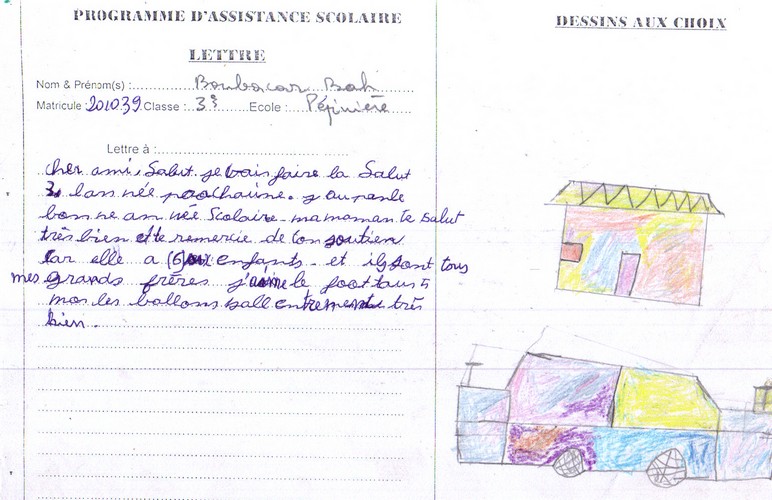 PROGRAMME D'ASSISTANCE SCOLAIRE
LETTRE
Nom & Prénom(s) : Boubacar Bah
Matricule : 201039 Classe : 3è Ecole : Pépinière
Lettre à :
cher ami, Salut. je vais faire la Salut
lan née prochaine.
bon ne an née Scolaire - ma maman te Salut
très bien et te remercie de ton soutien
Car elle a 6 enfants - et ils sont tous
mes grands frères j'aime le foot
les ballons ball très
bien.
DESSINS AUX CHOIX